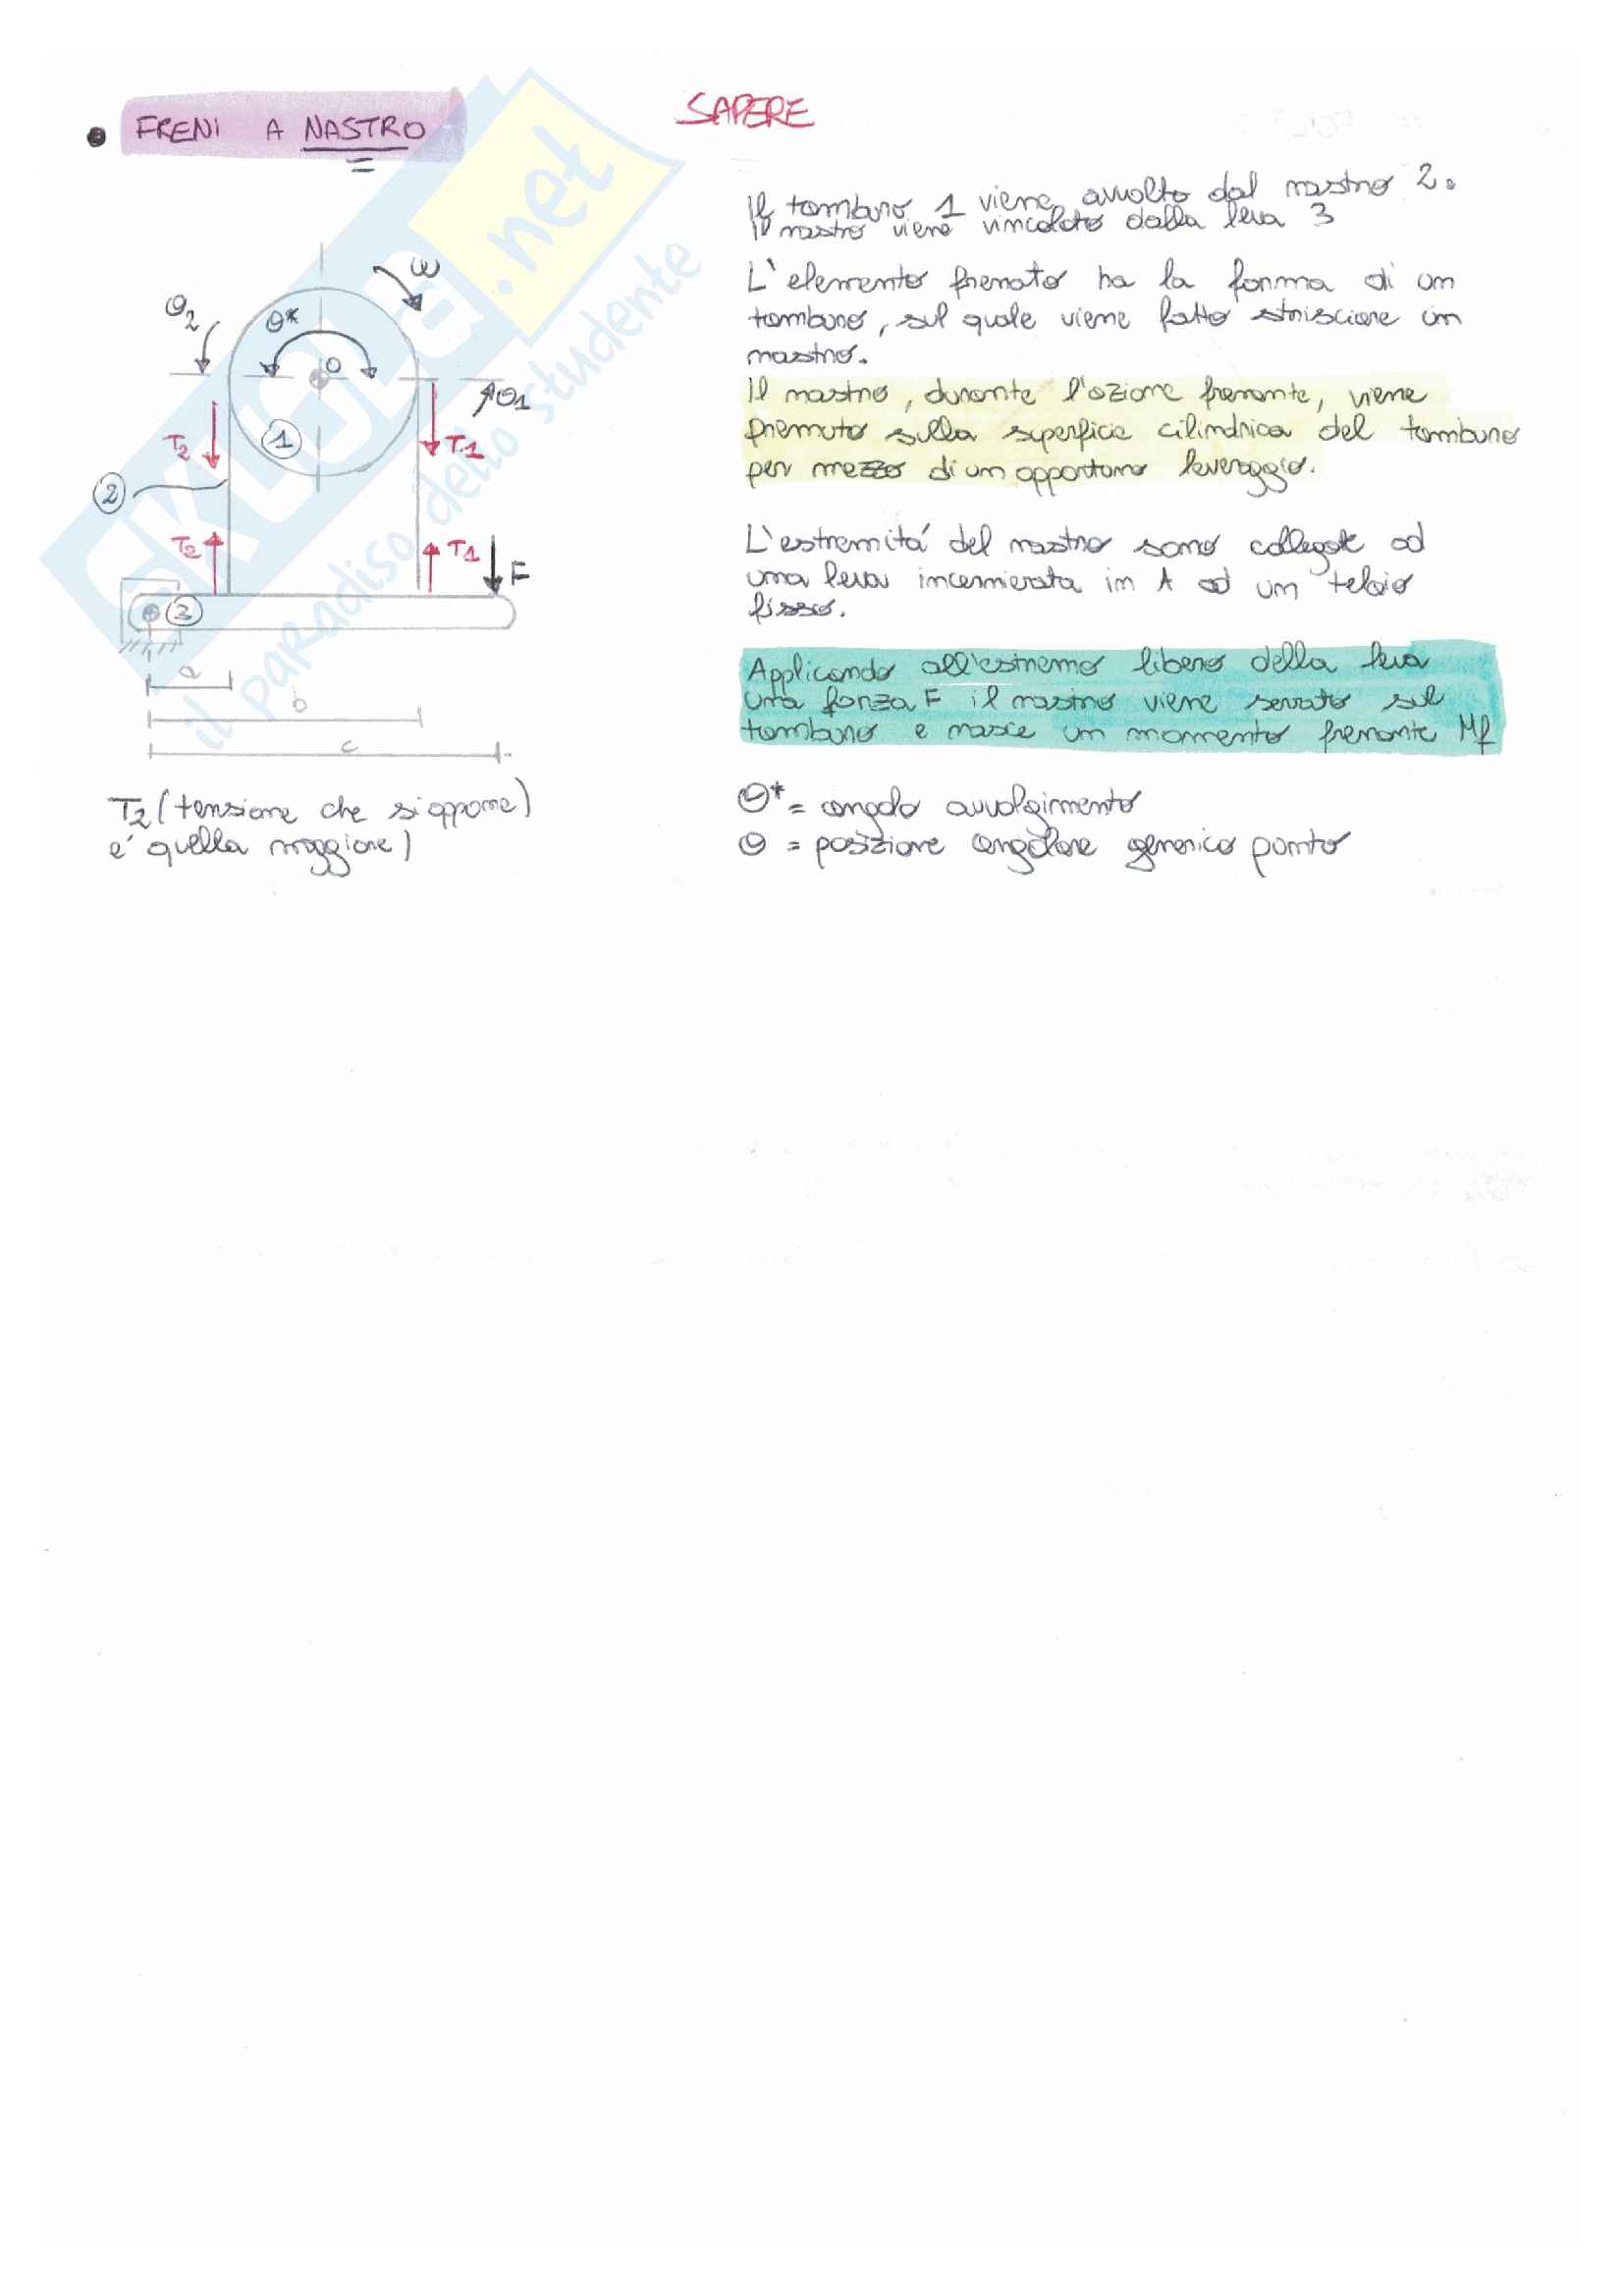 • FRENI A NASTRO
SAPERE
Il tamburo 1 viene avvolto dal nastro 2.
Il nastro viene vincolato dalla leva 3
L'elemento frenato ha la forma di un
tamburo, sul quale viene fatto strisciare un
nastro.
Il nastro, durante l'azione frenante, viene
premuto sulla superficie cilindrica del tamburo
per mezzo di un opportuno leveraggio.
L'estremitá del nastro sono collegate ad
una leva incernierata in A ad un telaio
fisso.
Applicando all'estremo libero della leva
una forza F il nastro viene serrato sul
tamburo e nasce un momento frenante Mf
θ* = angolo avvolgimento
θ = posizione angolare generico punto
ω
θ2
θ*
O
θ1
T2
1
T1
2
T2
T1
F
3
a
b
c
T2 (tensione che si oppone)
e' quella maggiore)
SKUOLA.net
il paradiso dello studente